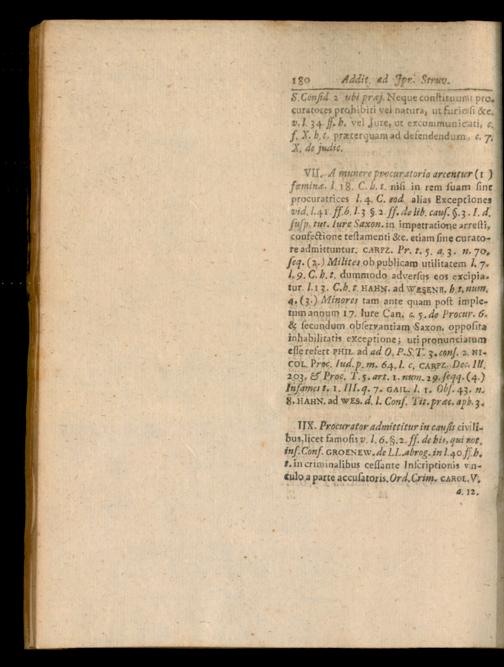 180 Addit. ad Jpr. Struv.
S. Consid 2 ubi præj. Neque constituunt pro-
curatores prohibiti vel natura, ut furiosi &c.
v. l. 34 ff. h. vel Jure, ut excommunicati, c.
f. X. h. t. præterquam ad defendendum, c. 7.
X. de judic.
VII. A munere procuratorio arcentur (1)
fœminæ. l. 18. C. h. t. nisi in rem suam sint
procuratrices l. 4. C. eod alias Exceptiones
vid. l. 41. ff. h. l. 3 §. 2. ff. de lib. caus. §. 3. I. d.
susp. tut. Iure Saxon. in impetratione arresti,
confectione testamenti &c. etiam sine curato-
re admittuntur. CARPZ. Pr. t. 5. a. 3. n. 70.
seq. (2.) Milites ob publicam utilitatem l. 7.
l. 9. C. h. t. dummodo adversus eos excipia-
tur. l. 13. C. h. t. HAHN. ad WESENB. h. t. num.
4. (3.) Minores tam ante quam post imple-
tum annum 17. Iure Can. c. 5. de Procur. 6.
& secundum observantiam Saxon. opposita
inhabilitatis exceptione; uti pronunciatum
esse refert PHIL. ad ad O. P. S. T. 3. cons. 2. NI-
COL. Proc. Iud. p. m. 64. l. c. CARPZ. Dec. III.
203. & Proc. T. 5. art. 1. num. 29. seqq. (4.)
Infames t. 1. III. q. 7. GAIL. l. 1. Obs. 43. n.
8. HAHN. ad WES. d. l. Conf. Tit. præc. aph. 3.
IIX. Procurator admittitur in causis civili-
bus, licet famosis v. l. 6. §. 2. ff. de his, qui not.
inf. Conf. GROENEW. de LL. abrog. in l. 40 ff. h.
t. in criminalibus cessante Inscriptionis vin-
culo a parte accusatoris. Ord. Crim. CAROL. V.
a. 12.